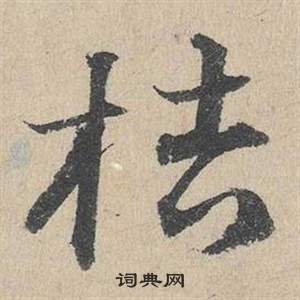 桔
词典网